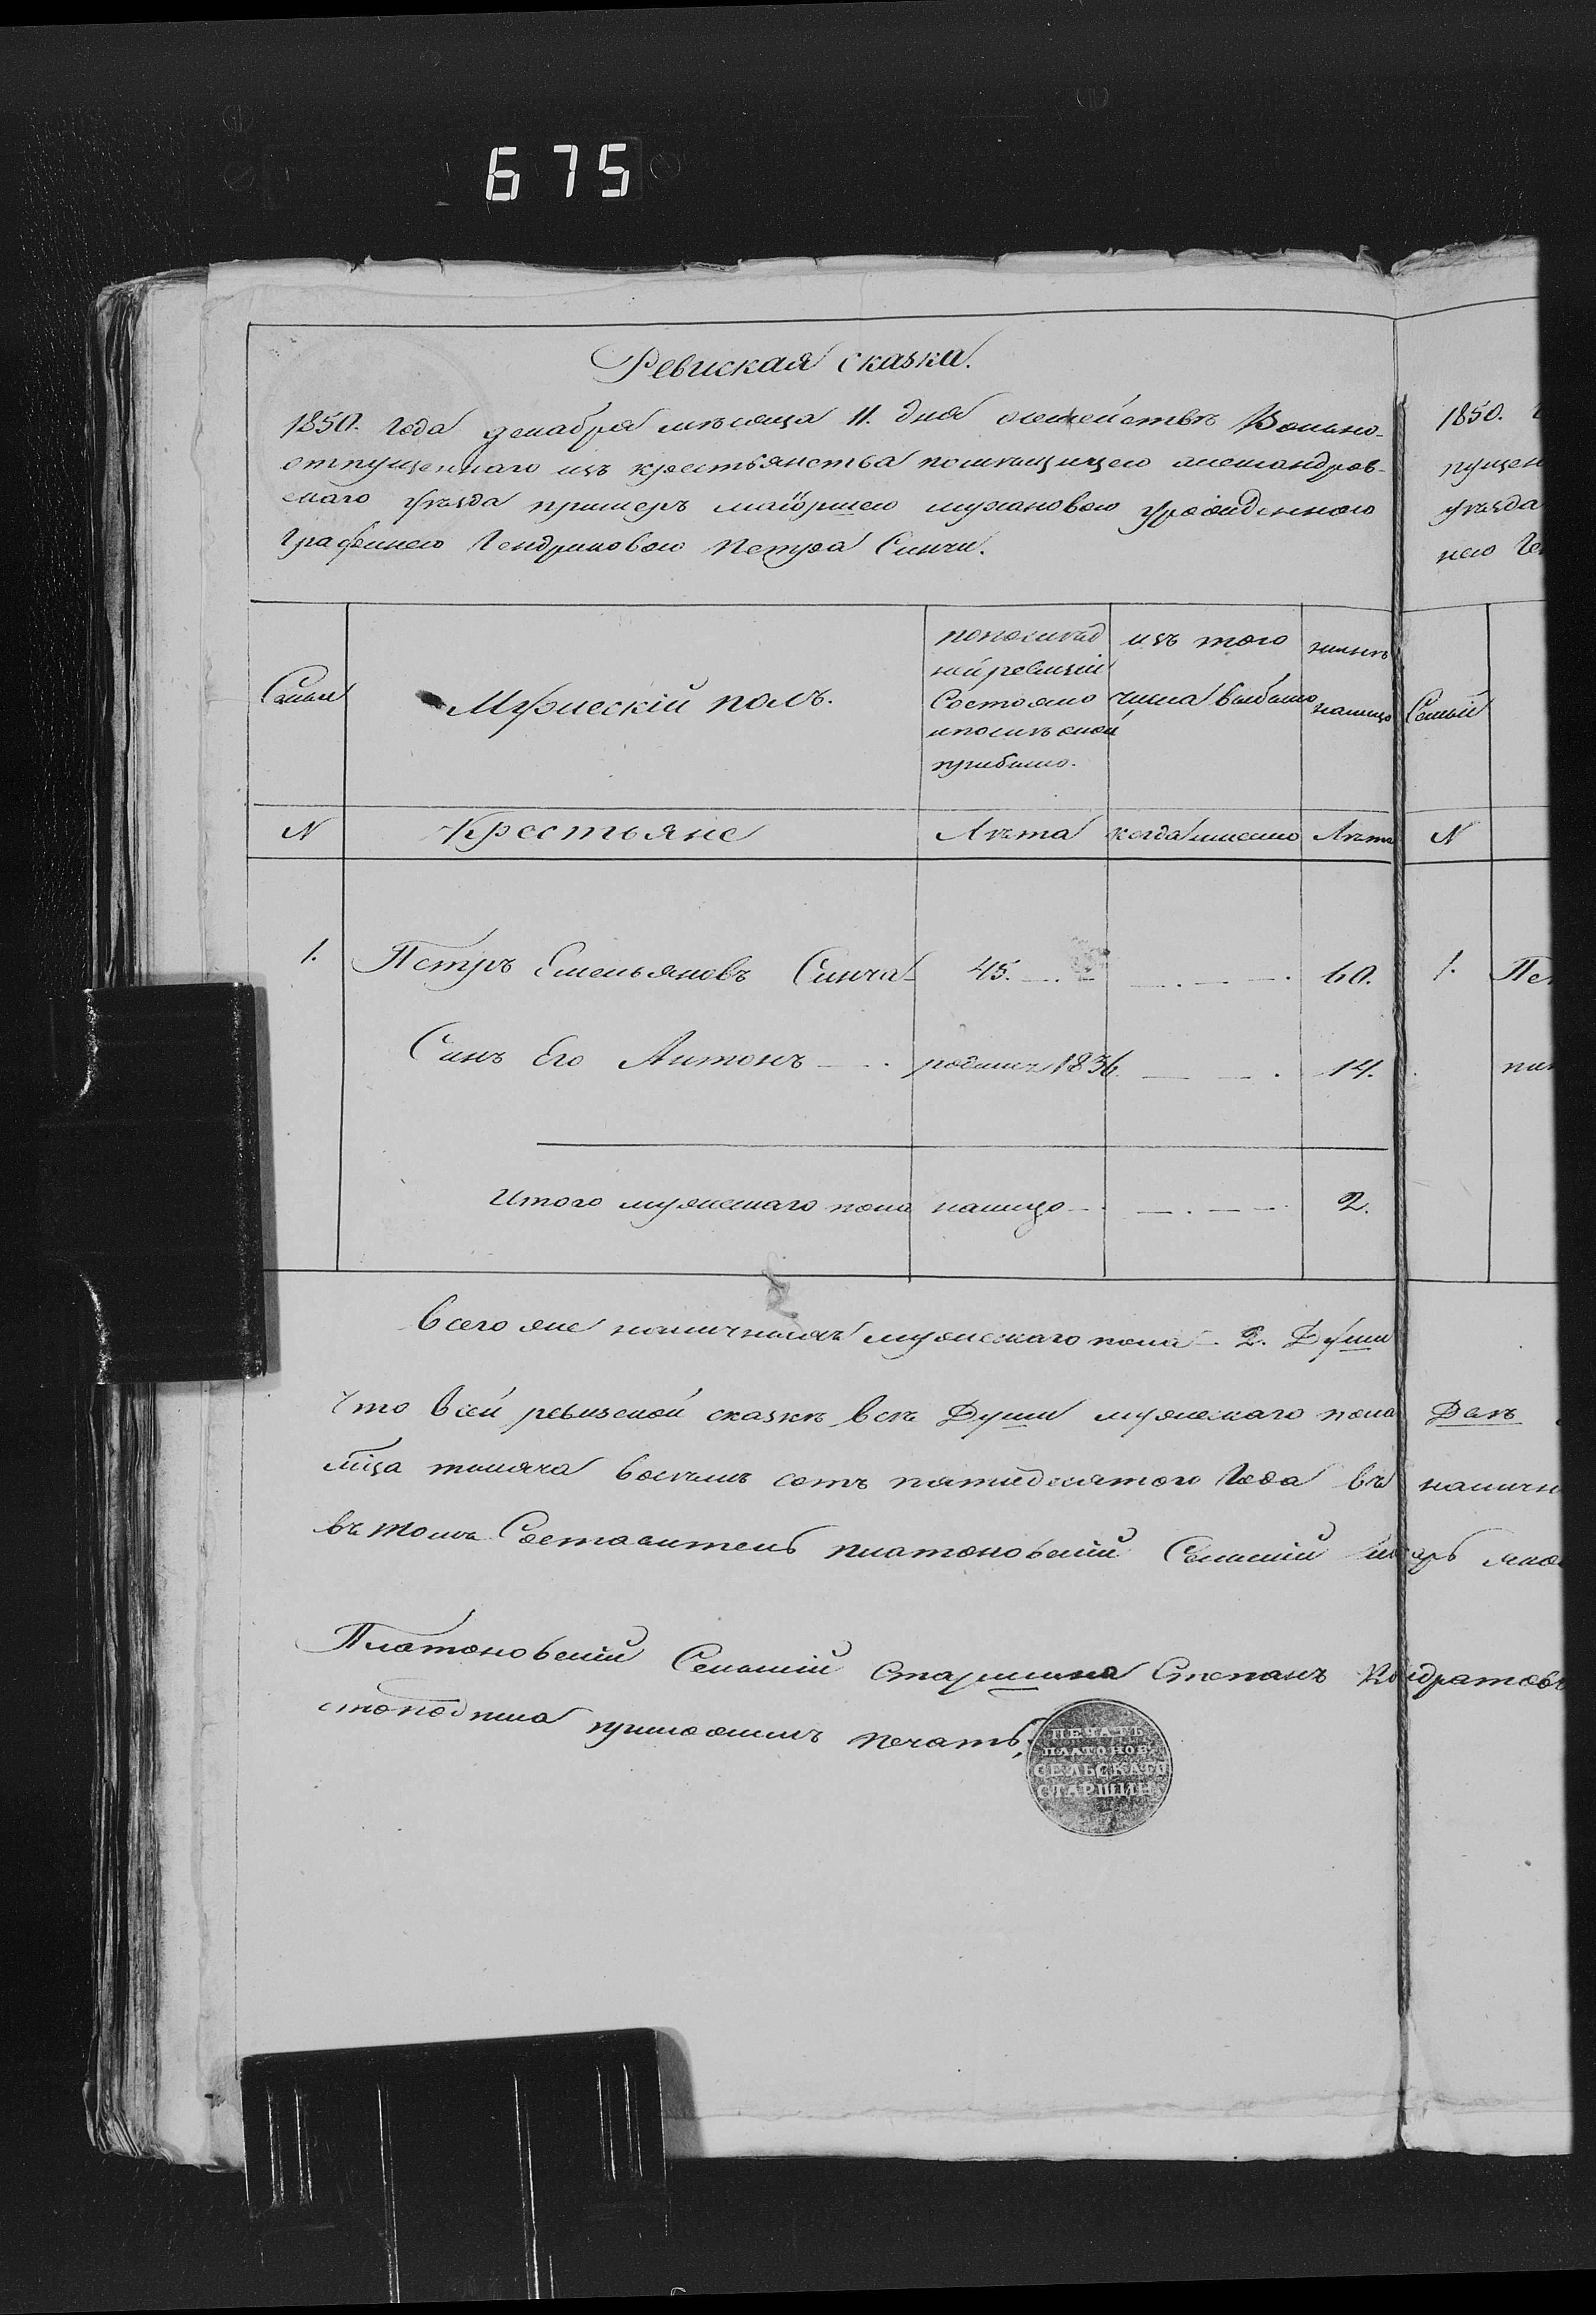 675
Ревиская сказка.
1850. года декабря месяца 11. дня осемействѣ Вольно-
отпущеннаго изъ крестьянства помѣщицею александров-
скаго уѣзда примеръ маіоршею мухановою урожденною
Графинею Гендриковою Петра Синчи.
Семьи
Мужескій полъ.
попослѣд
ней ревизіи
Состояло
ипослѣ оной
прибыло.
изъ того
числа выбыло
нынѣ
налицо
N
Крестьяне
Лѣта
когда именно
Лѣта
1.
Петръ Емельяновъ Синча
45.
60.
Сынъ Его Антонъ
родился 1836.
14.
Итого мужескаго пола налицо
2.
Всего же наличныхъ мужескаго пола 2. Души
Что всей ревизской сказкѣ всѣ Души мужескаго пола
мца тысяча восемь сотъ пятидесятого Года въ
въ томъ Составитель платоновскій Сельскій писарь
Платоновскій Сельскій Старшина Степанъ Кондратовъ
приложилъ печать,
ПЕЧАТЬ
ПЛАТОНОВ.
СЕЛЬСКАГО
СТАРШИН
1850.
пущен
уѣзда
нею Ге
Семьи
N
1.
Пе
наличн